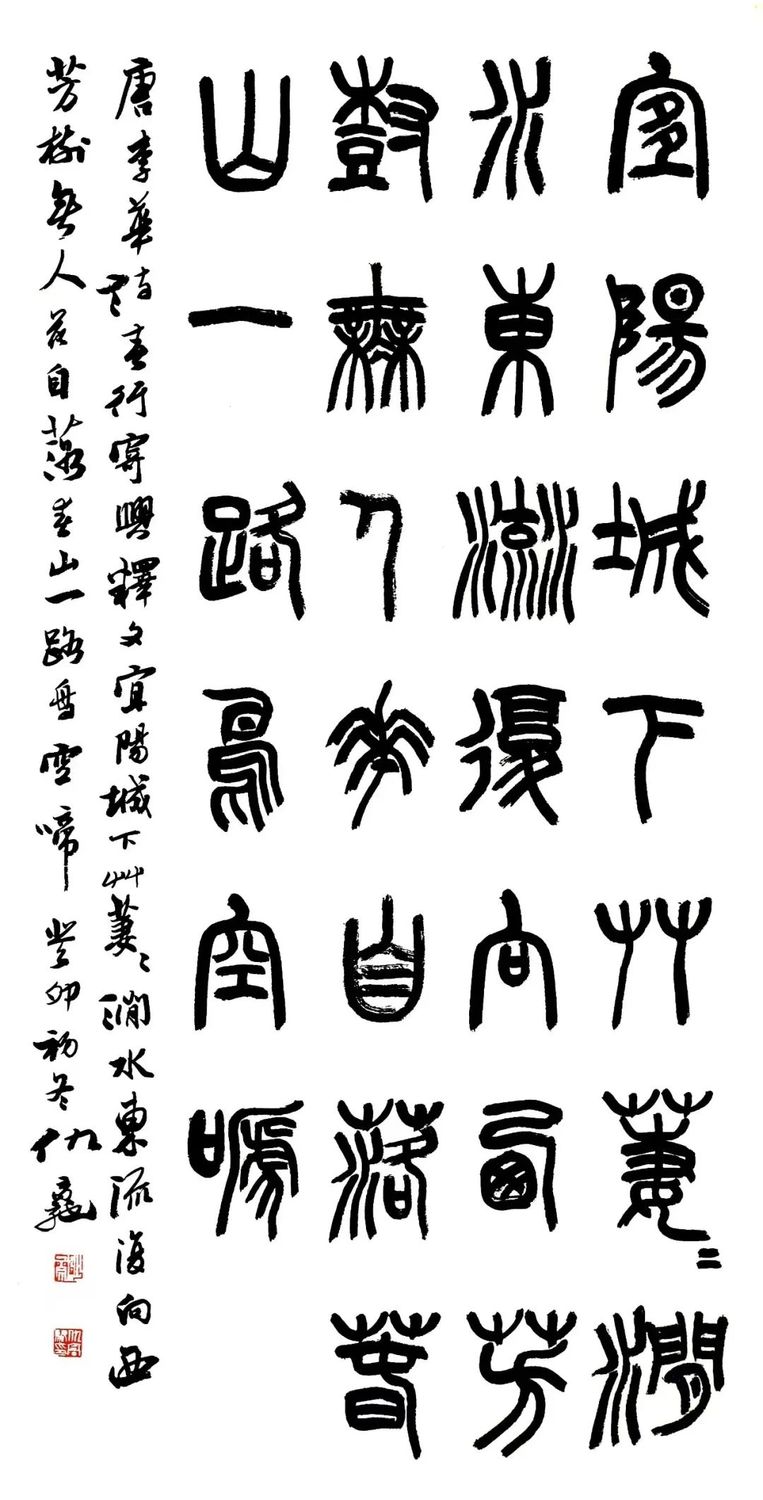 宜陽城下艸萋〻澗
水東流復向西芳
樹無人花自落春
山一路鳥空嗁
唐李華詩春行寄興釋文宜陽城下艸萋〻澗水東流復向西
芳樹無人花自落春山一路鳥空啼癸卯初冬仇